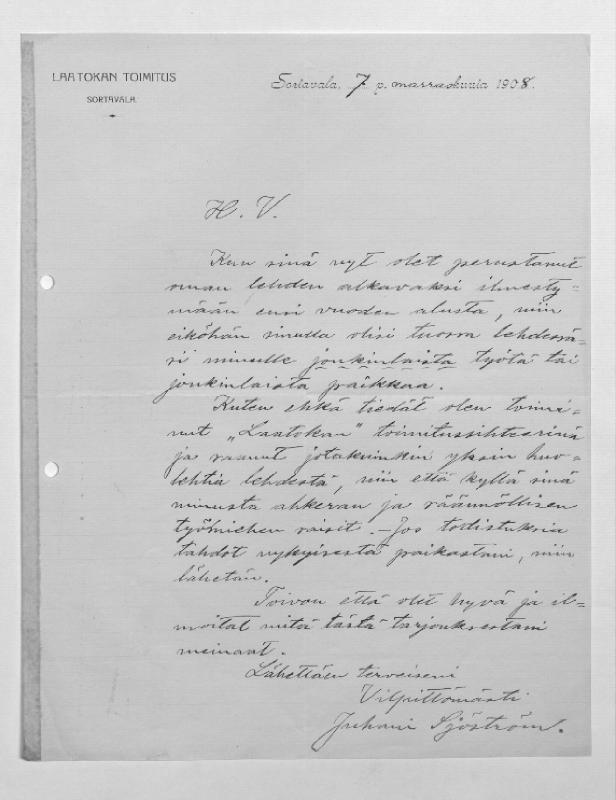 LAATOKAN TOIMITUS
SORTAVALA.
Sortavala, 7 p. marraskuuta 1908.
H. V.
Kun sinä nyt olet perustanut
oman lehden alkavaksi ilmesty-
mään ensi vuoden alusta, niin
eiköhän sinulla olisi tuossa lehdessä-
si minulle jonkinlaista työtä tai
jonkinlaista paikkaa.
Kuten ehkä tiedät olen toimi-
nut „Laatokan" toimitussihteerinä
ja saanut jotakuinkin yksin huo-
lehtia lehdestä, niin että kyllä sinä
minusta ahkeran ja säännöllisen
työmiehen saisit. - Jos todistuksia
tahdot nykyisestä paikastani, niin
lähetän.
Toivon että olet hyvä ja il-
moitat mitä tästä tarjouksestani
meinaat.
Lähettäen terveiseni
Vilpittömästi
Juhani Sjöström.